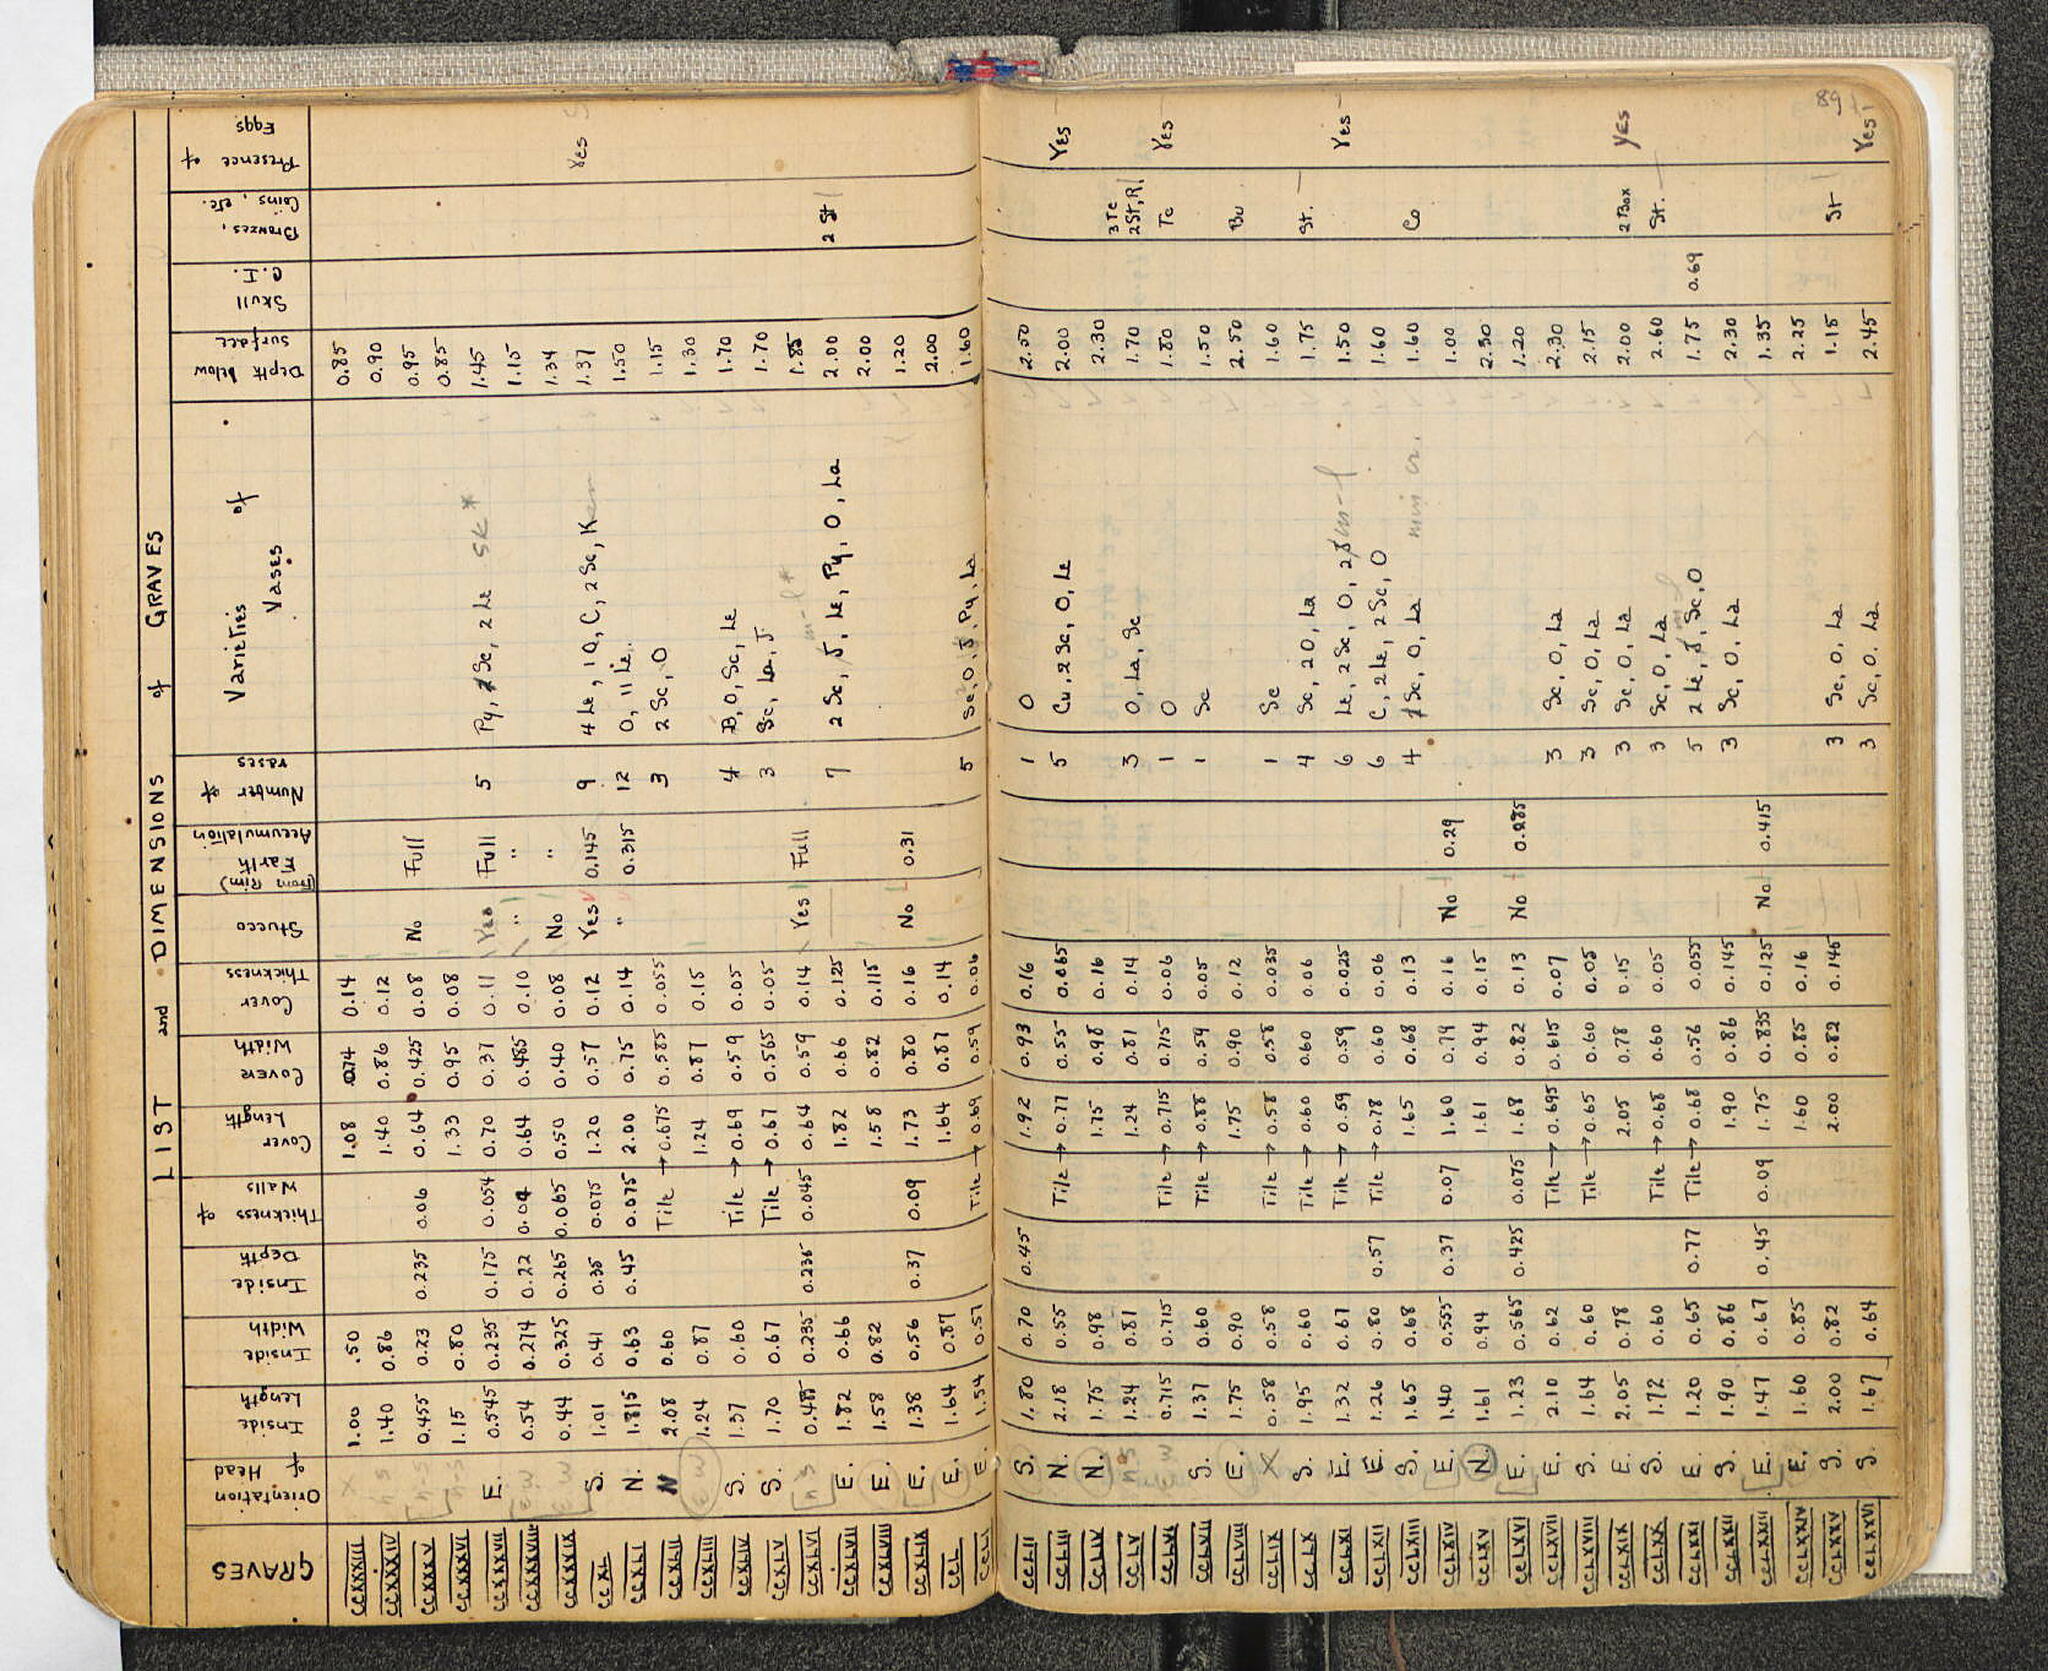 89
LIST and DIMENSIONS of GRAVES
GRAVES | Orientation of Head | Inside Length | Inside Width | Inside Depth | Thickness of Walls | Cover Length | Cover Width | Cover Thickness | Stucco | (From Rim) Earth Accumulation | Number of Vases | Varieties of Vases | Depth below surface | Skull C.I. | Bronzes, Coins, etc. | Presence of Eggs
CCXXXIII X 1.00 .50 1.08 0.74 0.14 0.85
CCXXXIV N-S 1.40 0.86 1.40 0.86 0.12 0.90
CCXXXV N-S 0.455 0.23 0.235 0.06 0.64 0.425 0.08 No Full 0.95
CCXXXVI N-S 1.15 0.80 1.33 0.95 0.08 0.85
CCXXXVII E. 0.545 0.235 0.175 0.054 0.70 0.37 0.11 Yes Full 5 Py, Sc, 2 Le SK* 1.45
CCXXXVIII E W 0.54 0.274 0.22 0.04 0.64 0.485 0.10 " " 1.15
CCXXXIX E W 0.44 0.325 0.265 0.065 0.50 0.40 0.08 No " 1.34
CCXL S. 1.01 0.41 0.35 0.075 1.20 0.57 0.12 Yes 0.145 9 4 Le, 1 O, C, 2 Sc, K 1.37 Yes
CCXLI N. 1.815 0.63 0.45 0.075 2.00 0.75 0.14 " 0.315 12 O, 11 Le. 1.50
CCXLII N 2.08 0.60 Tile → 0.675 0.585 0.055 3 2 Sc, O 1.15
CCXLIII E W 1.24 0.87 1.24 0.87 0.15 1.30
CCXLIV S. 1.37 0.60 Tile → 0.69 0.59 0.05 4 B, O, Sc, Le 1.70
CCXLV S. 1.70 0.67 Tile → 0.67 0.565 0.05 3 Sc, La, J. 1.70
CCXLVI N S 0.485 0.235 0.235 0.045 0.64 0.59 0.14 Yes Full 1.85
CCXLVII E. 1.82 0.66 1.82 0.66 0.125 7 2 Sc, J, Le, Py, O, La 2.00 2 St
CCXLVIII E. 1.58 0.82 1.58 0.82 0.115 2.00
CCXLIX E. 1.38 0.56 0.37 0.09 1.73 0.80 0.16 No 0.31 1.20
CCL E. 1.64 0.87 1.64 0.87 0.14 2.00
CCLI E. 1.54 0.57 Tile → 0.69 0.59 0.06 5 Sc, O, J, Py, La 1.60
CCLII S. 1.80 0.70 0.45 1.92 0.93 0.16 1 O 2.50
CCLIII N. 2.18 0.55 Tile → 0.77 0.55 0.065 5 Cu, 2 Sc, O, Le 2.00 Yes
CCLIV N. 1.75 0.98 1.75 0.98 0.16 2.30
CCLV N S 1.24 0.81 1.24 0.81 0.14 3 O, La, Sc 1.70 3 Te 2 St, R.
CCLVI E W 0.715 0.715 Tile → 0.715 0.715 0.06 1 O 1.80 Te Yes
CCLVII S. 1.37 0.60 Tile → 0.88 0.59 0.05 1 Sc 1.50
CCLVIII E. 1.75 0.90 1.75 0.90 0.12 2.50 Bu
CCLIX X 0.58 0.58 Tile → 0.58 0.58 0.035 1 Sc 1.60
CCLX S. 1.95 0.60 Tile → 0.60 0.60 0.06 4 Sc, 2 O, La 1.75 St.
CCLXI E. 1.32 0.67 Tile → 0.59 0.59 0.025 6 Le, 2 Sc, O, 2 J m-f 1.50 Yes
CCLXII E. 1.26 0.80 0.57 Tile → 0.78 0.60 0.06 6 C, 2 Le, 2 Sc, O 1.60
CCLXIII S. 1.65 0.68 1.65 0.68 0.13 4 Sc, O, La 1.60 Co
CCLXIV E. 1.40 0.555 0.37 0.07 1.60 0.79 0.16 No 0.29 1.00
CCLXV N. 1.61 0.94 1.61 0.94 0.15 2.30
CCLXVI E. 1.23 0.565 0.425 0.075 1.68 0.82 0.13 No 0.285 1.20
CCLXVII E. 2.10 0.62 Tile → 0.695 0.615 0.07 3 Sc, O, La 2.30
CCLXVIII S. 1.64 0.60 Tile → 0.65 0.60 0.05 3 Sc, O, La 2.15
CCLXIX E. 2.05 0.78 2.05 0.78 0.15 3 Sc, O, La 2.00 2 Box Yes
CCLXX S. 1.72 0.60 Tile → 0.68 0.60 0.05 3 Sc, O, La 2.60 St.
CCLXXI E. 1.20 0.65 0.77 Tile → 0.68 0.56 0.055 5 2 Le, J, Sc, O 1.75 0.69
CCLXXII S. 1.90 0.86 1.90 0.86 0.145 3 Sc, O, La 2.30
CCLXXIII E. 1.47 0.67 0.45 0.09 1.75 0.835 0.125 No 0.415 1.35
CCLXXIV E. 1.60 0.85 1.60 0.85 0.16 2.25
CCLXXV S. 2.00 0.82 2.00 0.82 0.145 3 Sc, O, La 1.15 St
CCLXXVI S. 1.67 0.64 3 Sc, O, La 2.45 Yes